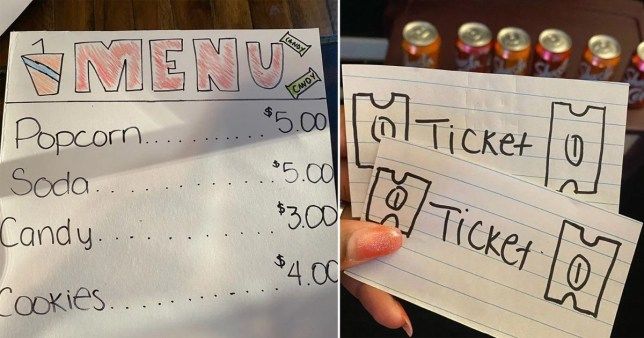 MENU
CANDY
CANDY
Popcorn.............$5.00
Soda................$5.00
Candy...............$3.00
Cookies.............$4.00
Ticket
Ticket